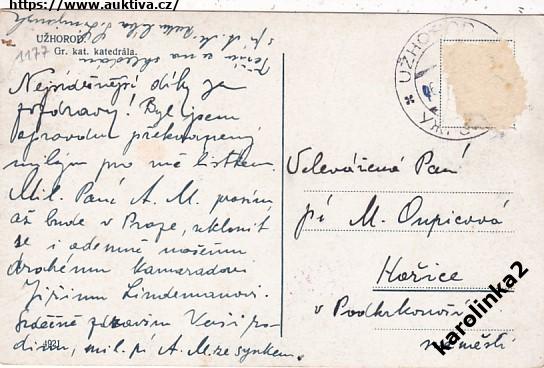 https://www.auktiva.cz/
UŽHOROD.
Gr. kat. katedrála.
1177
Nejsrdečnější díky za
pozdravy! Byl jsem
opravdu překvapený
milým pro mě lístkem.
Mil. Paní A. M. prosím,
až bude v Praze, uklonit
se i odemně našemu
drahému kamarádovi
Jiřímu Lindemanovi.
Srdečně zdravím Vaši ro-
dinu, mil. pí A. M. ze synkem.
1921
UŽHOROD
Velevážená Paní
pí M. Oupicová
Hořice
v Podkrkonoší
náměstí
karolinka2